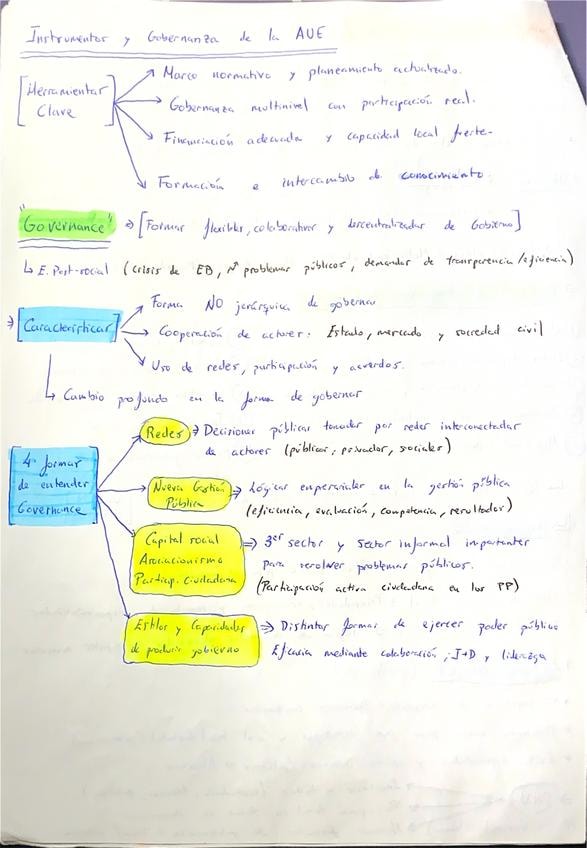 Instrumentos y Gobernanza de la AUE
Herramientas
Clave
Marco normativo y planeamiento actualizado.
Gobernanza multinivel con participación real.
Financiación adecuada y capacidad local fuerte.
Formación e intercambio de conocimiento.
"Governance" ⇒ [Formas flexibles, colaborativas y descentralizadas de Gobierno]
↳ E. Post-social (crisis de EB, Nº problemas públicos, demandas de transparencia/eficiencia)
⇒ [Características]
Forma NO jerárquica de gobernar
Cooperación de actores: Estado, mercado y sociedad civil
Uso de redes, participación y acuerdos.
↳ Cambio profundo en la forma de gobernar
4 formas
de entender
Governance
Redes ⇒ Decisiones públicas tomadas por redes interconectadas
de actores (públicos, privados, sociales)
Nueva Gestión
Pública
⇒ Lógicas empresariales en la gestión pública
(eficiencia, evaluación, competencia, resultados)
Capital social
Asociacionismo
Particip. ciudadana
⇒ 3er sector y sector informal importantes
para resolver problemas públicos.
(Participación activa ciudadana en las PP)
Estilos y Capacidades
de producir gobierno
⇒ Distintas formas de ejercer poder público
Eficacia mediante colaboración, I+D y liderazgo